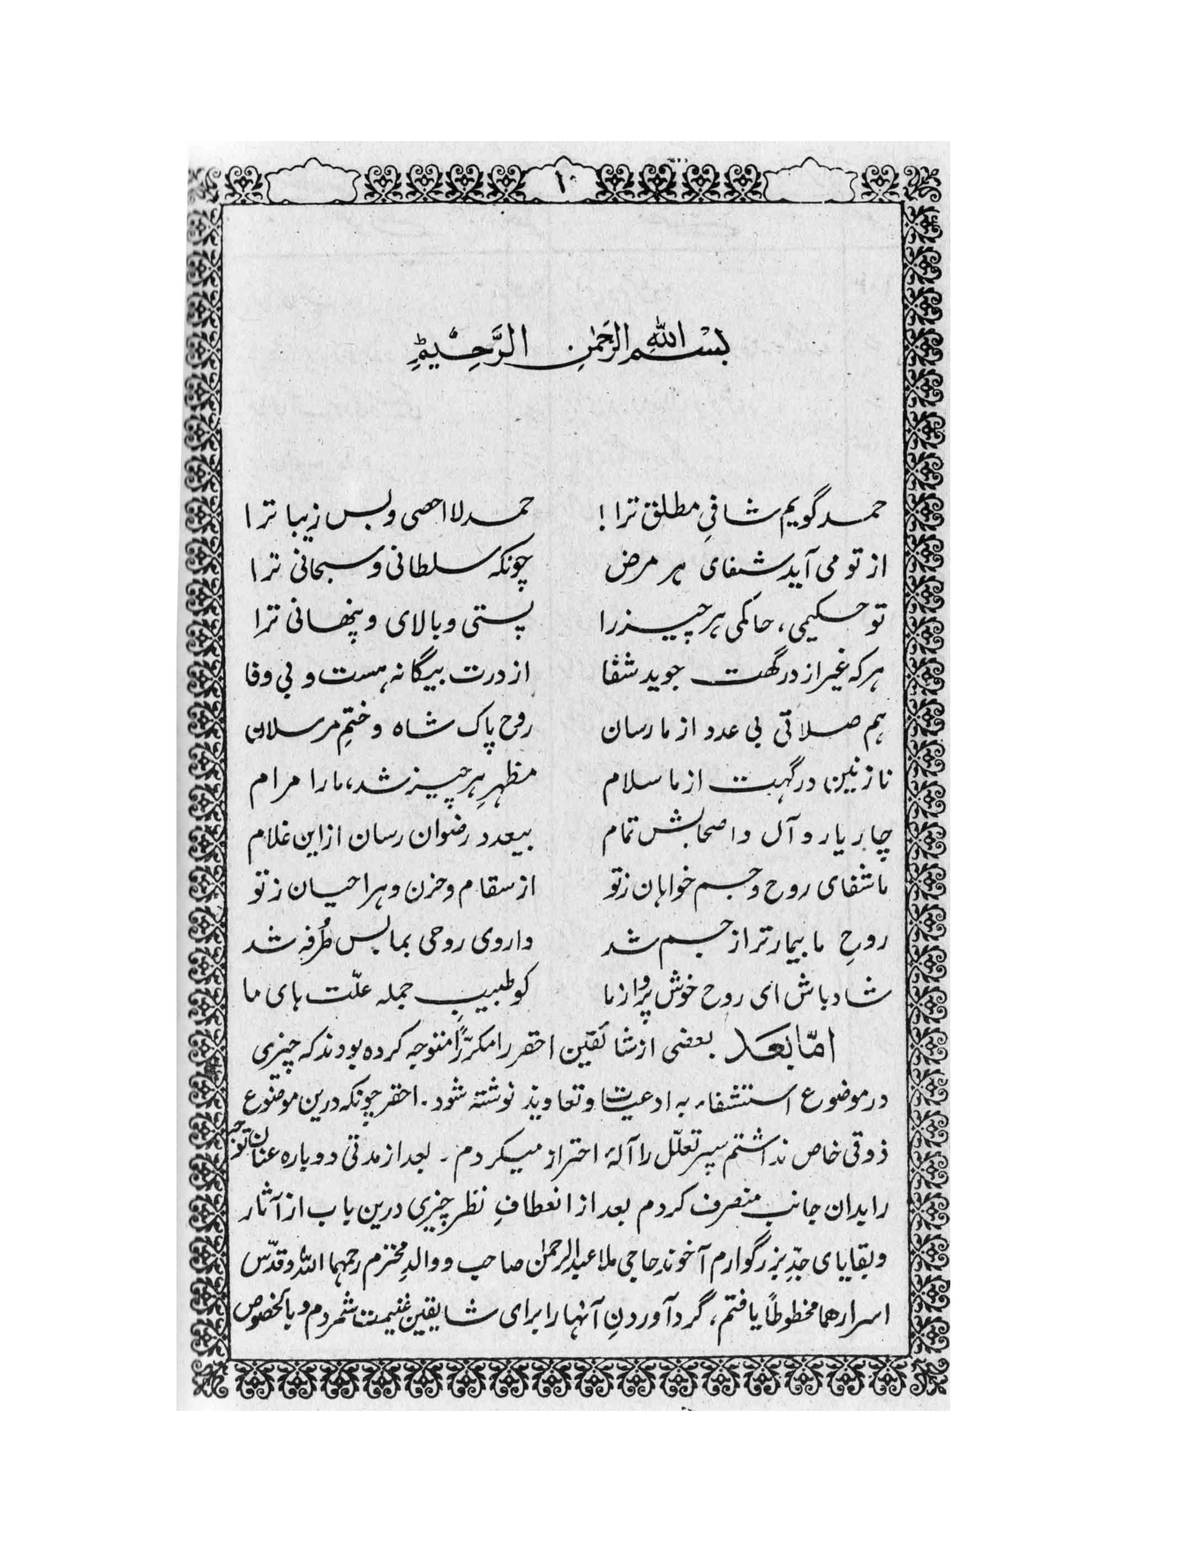 ۱۰
بِسْمِ اللهِ الرَّحْمٰنِ الرَّحِیْمِ
حمد گویم شافیِ مطلق ترا! حمد لااحصی و بس زیبا ترا
از تو می آید شفای هر مرض چونکه سلطانی و سبحانی ترا
تو حکیمی، حاکمی هر چیز را پستی و بالای و پنهانی ترا
هر که غیر از درگهت جوید شفا از درت بیگانه هست و بی وفا
هم صلاتی بی عدد از ما رسان روح پاک شاه و ختمِ مرسلان
نازنین درگهت از ما سلام مظهرِ هر چیز شد، ما را مرام
چار یار و آل و اصحابش تمام بیعدد رضوان رسان از این غلام
ما شفای روح و جسم خواهان ز تو از سقام و حزن و هر احیان ز تو
روحِ ما بیمار تر از جسم شد داروی روحی بما بس طُرفه شد
شاد باش ای روح خوش پرواز ما کو طبیبِ جمله علّت های ما
امّا بَعَد بعضی از شائقین احقر را مکرّراً متوجه کرده بودند که چیزی
در موضوع استشفاء به ادعیات و تعاویذ نوشته شود. احقر چونکه درین موضوع
ذوقی خاص نداشتم سپر تعلّل را آلهٔ احتراز میکردم ۔ بعد از مدتی دوباره عنان توجّه
را بدان جانب منصرف کردم بعد از انعطافِ نظر چیزی درین باب از آثار
و بقایای جدِّ بزرگوارم آخوند حاجی ملا عبدالرحمٰن صاحب و والدِ محترم رحمهما الله و قدّس
اسرارهما مخطوطاً یافتم، گرد آوردنِ آنها را برای شایقین غنیمت شمردم و بالخصوص